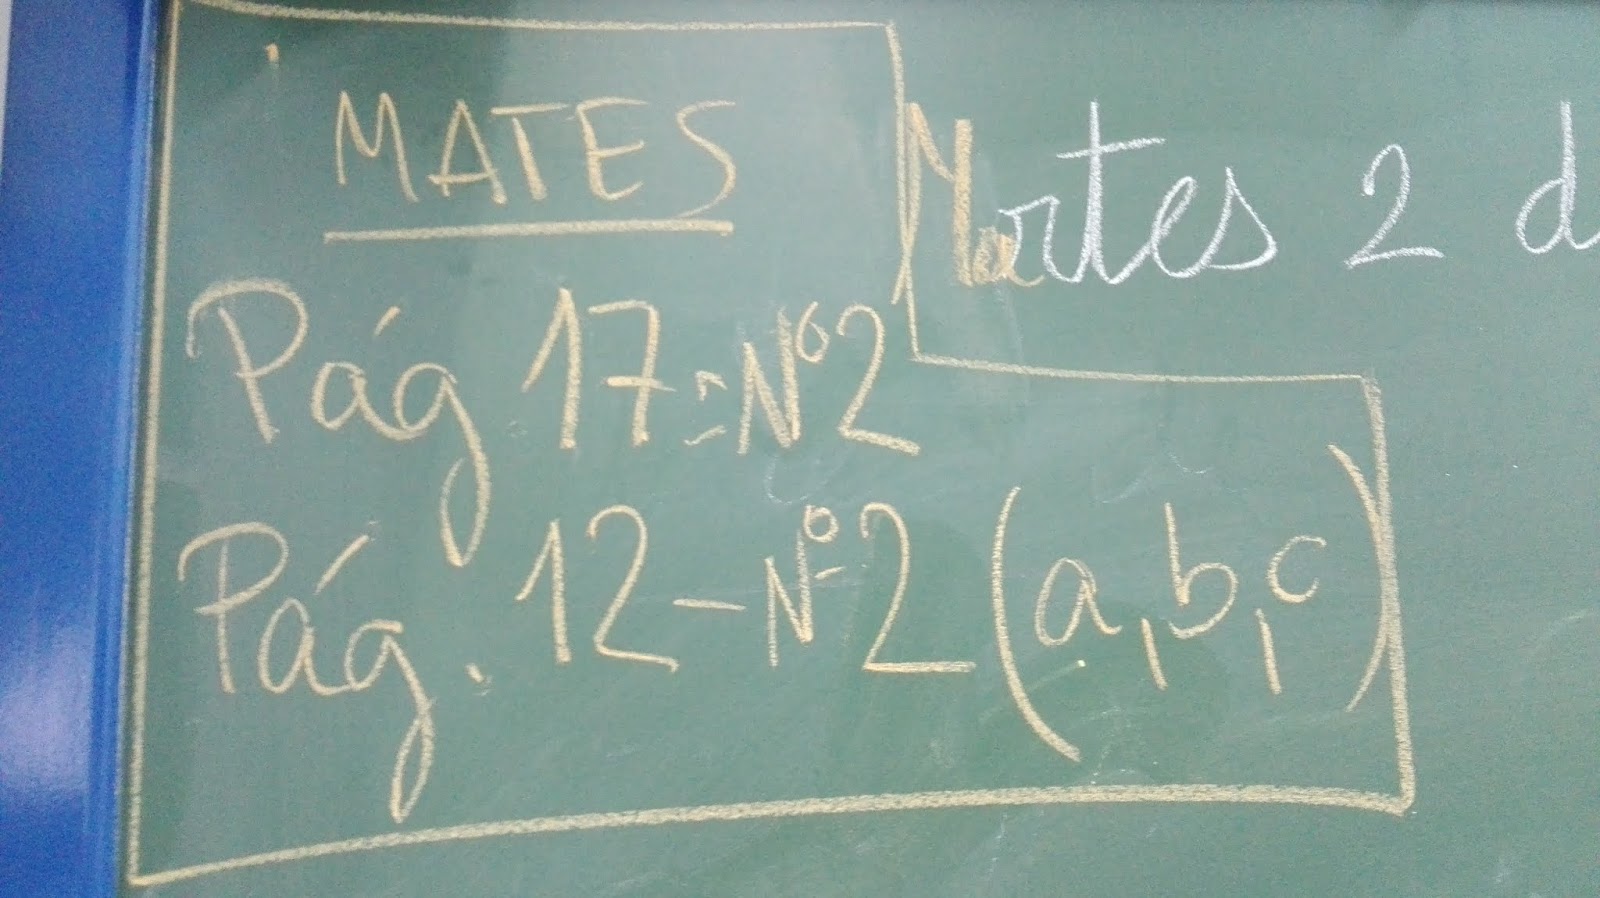 MATES
Martes 2 d
Pág 17 = Nº 2
Pág. 12 - Nº 2 (a, b, c)